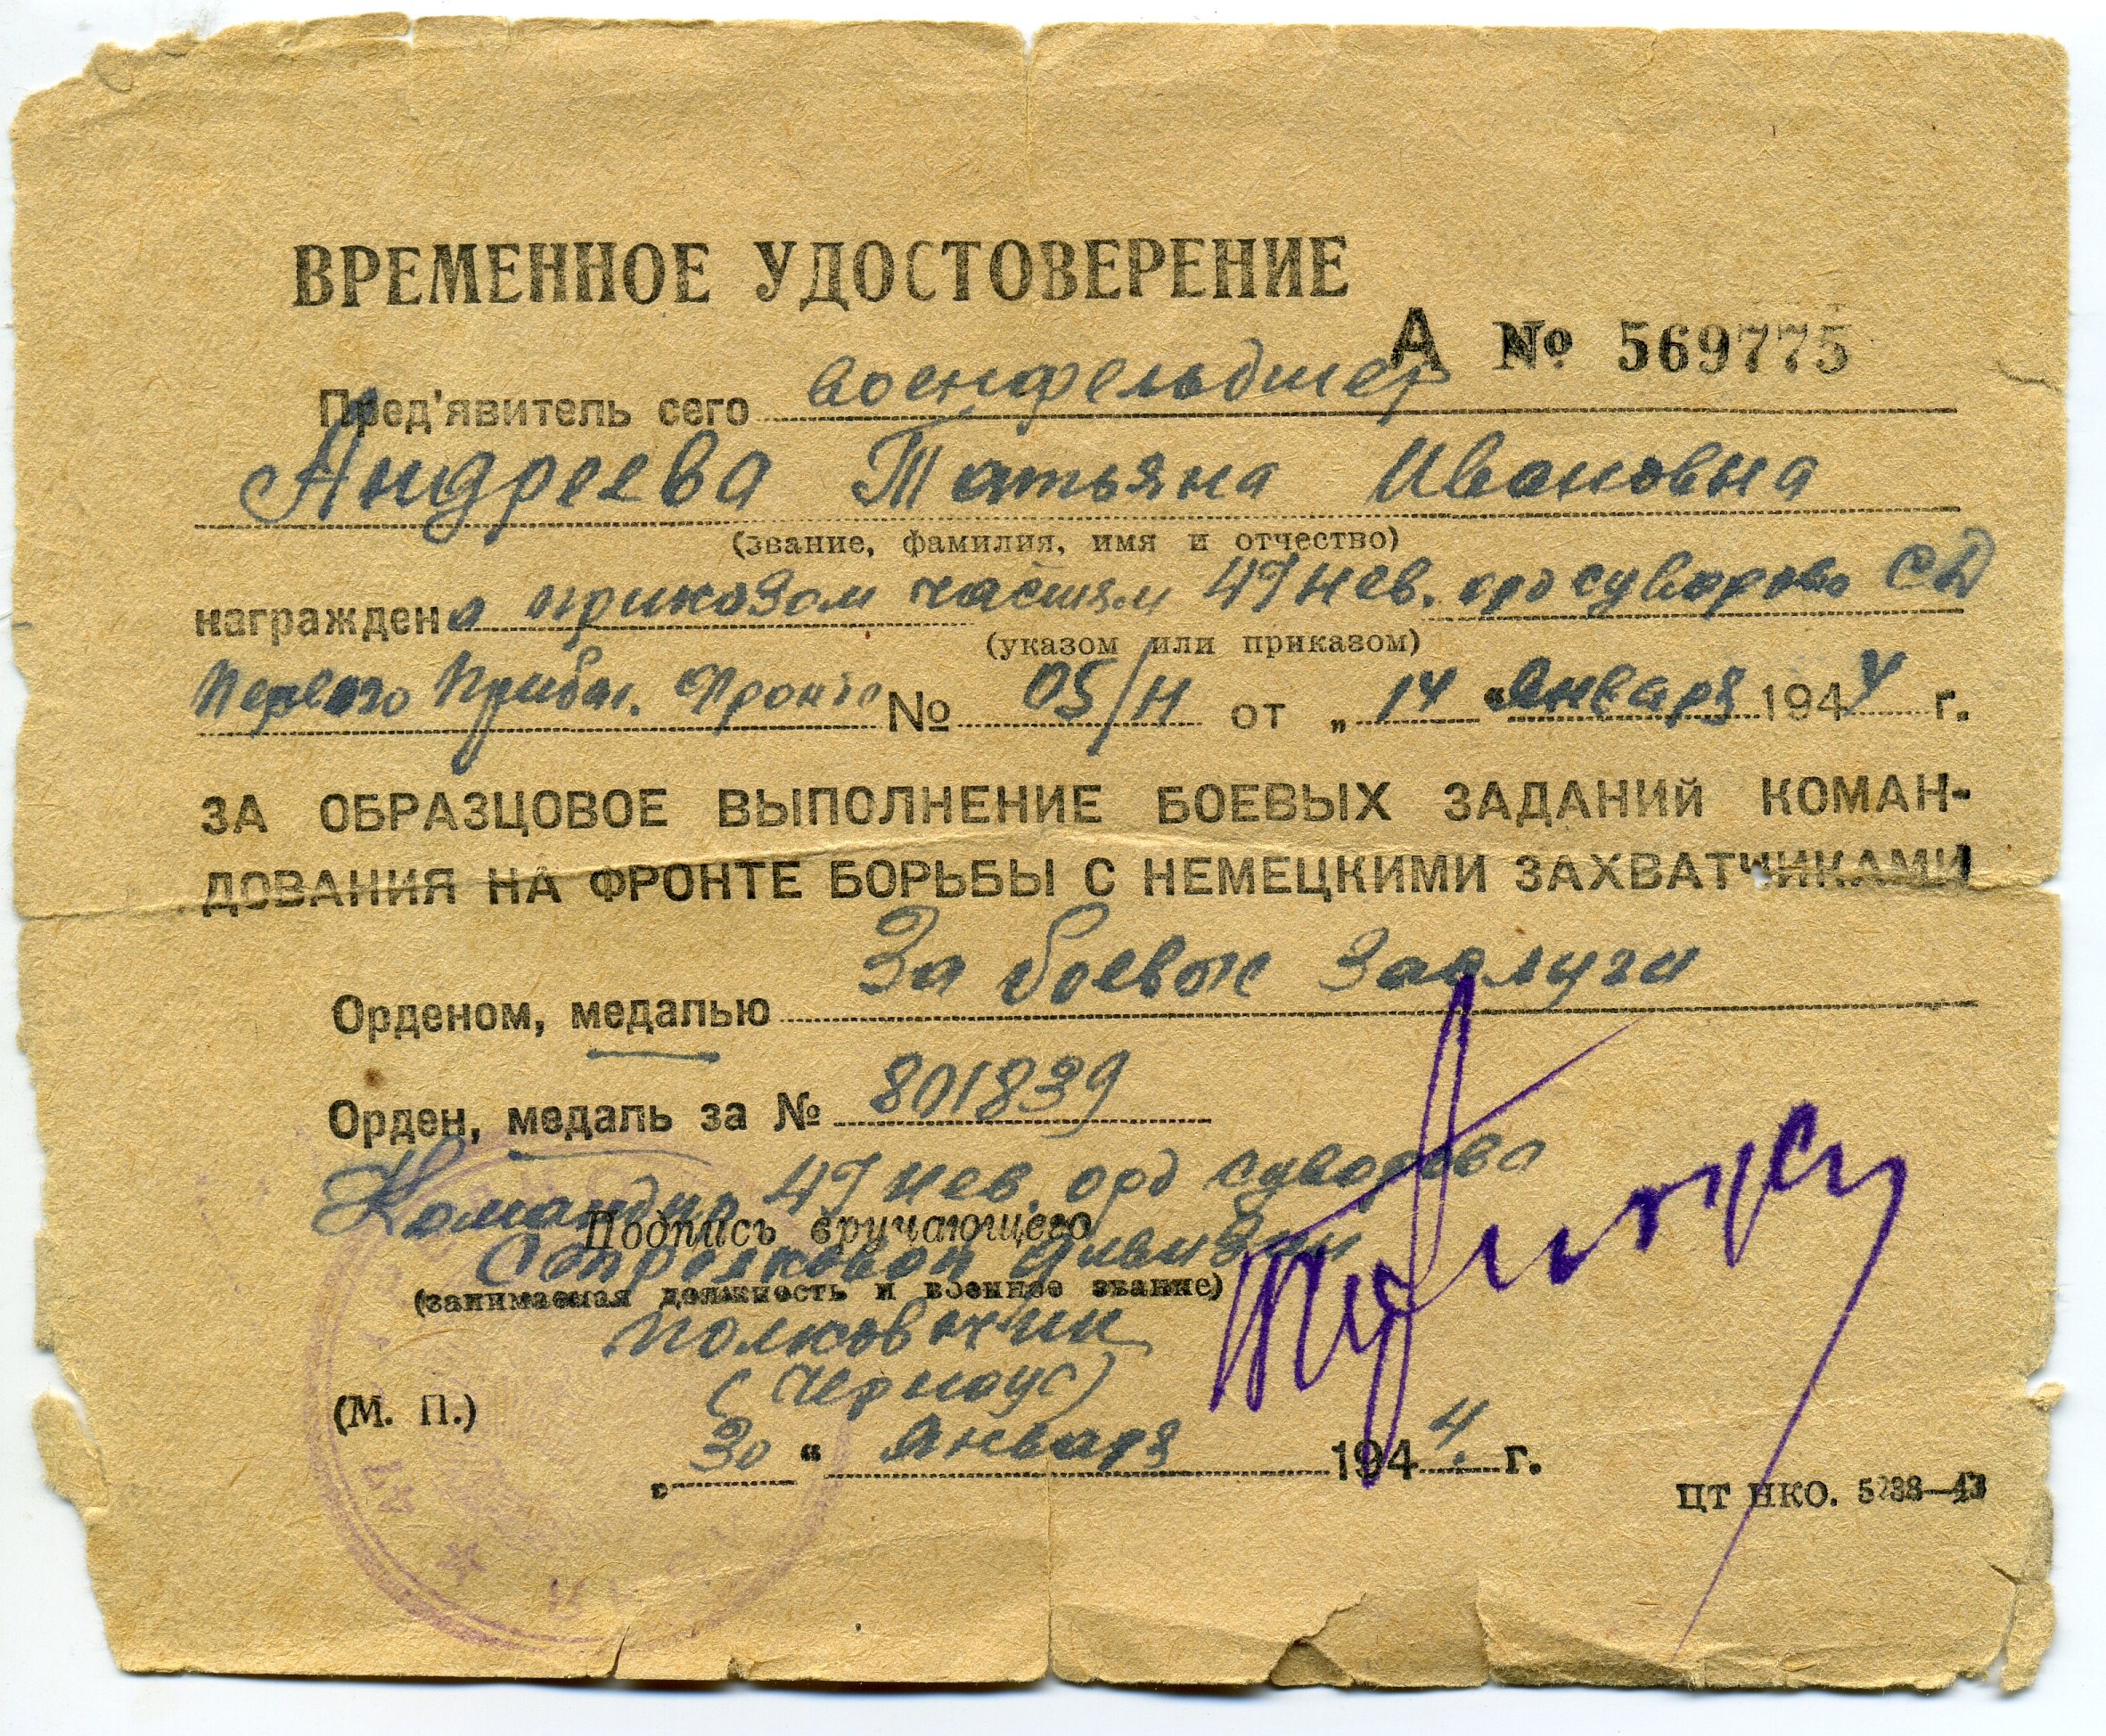 ВРЕМЕННОЕ УДОСТОВЕРЕНИЕ
А № 569775
Пред'явитель сего военфельдшер
Андреева Татьяна Ивановна
(звание, фамилия, имя и отчество)
награждена приказом частям 47 Нев. орд Суворова СД
(указом или приказом)
Первого Прибал. Фронта № 05/Н от „14 “ Января 1944 г.
ЗА ОБРАЗЦОВОЕ ВЫПОЛНЕНИЕ БОЕВЫХ ЗАДАНИЙ КОМАН-
ДОВАНИЯ НА ФРОНТЕ БОРЬБЫ С НЕМЕЦКИМИ ЗАХВАТЧИКАМИ
Орденом, медалью За боевые Заслуги
Орден, медаль за № 801839
Командир 47 Нев. орд Суворова
Подпись вручающего
Стрелковой Дивизии
(занимаемая должность и военное звание)
Полковник
(Черноус)
(М. П.)
„30 “ Января 1944. г.
ЦТ НКО. 5238—43